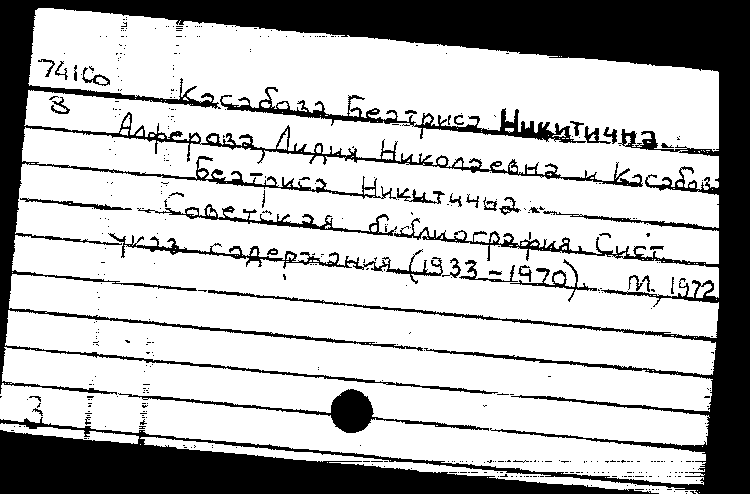 741Co Касабова, Беатриса Никитична.
8
Алферова, Лидия Николаевна и Касабова
Беатриса Никитична
Советская библиография. Сист.
указ. содержания (1933-1970). М., 1972
3